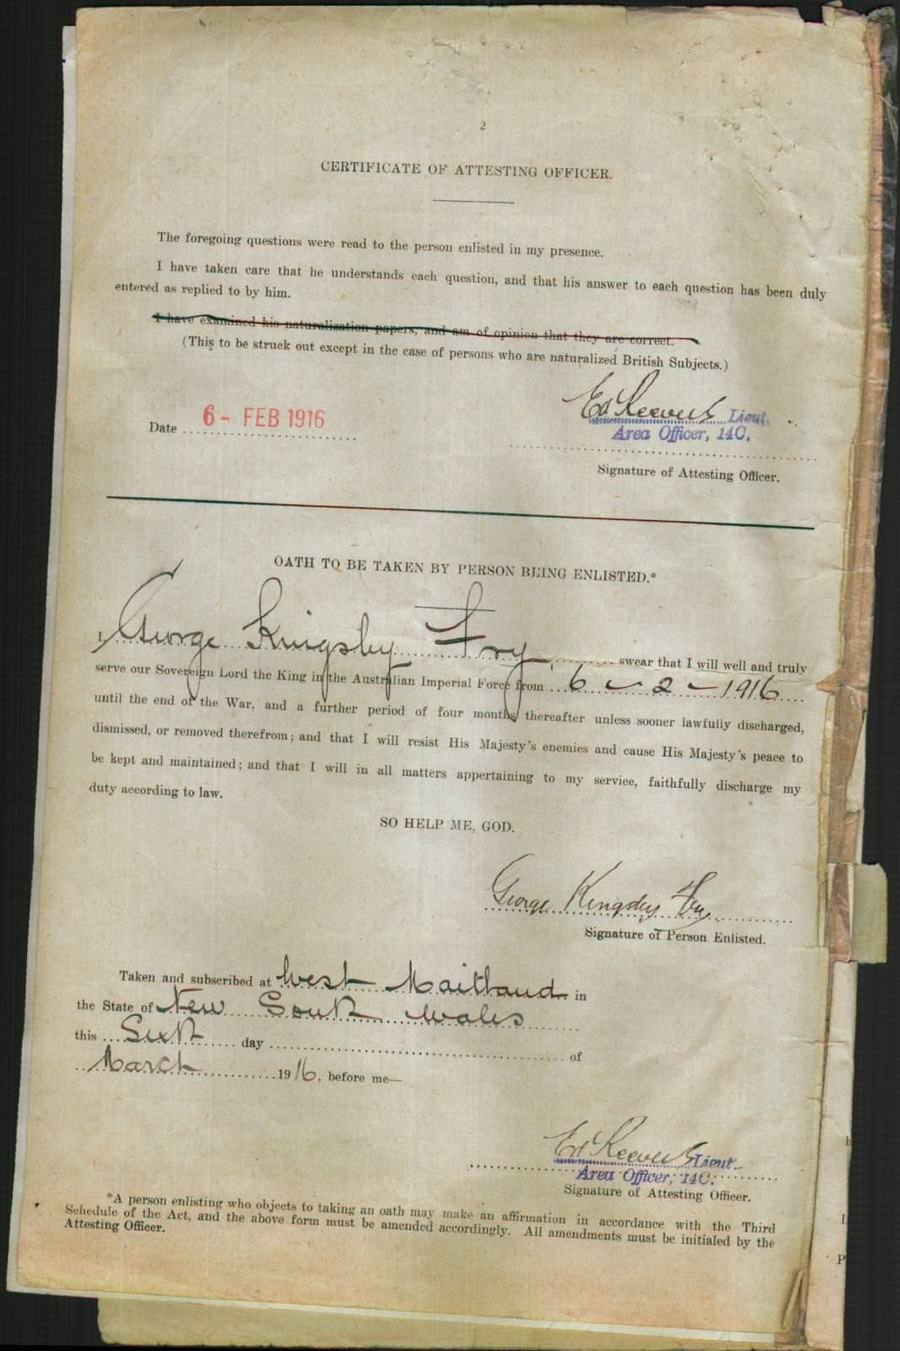 2
CERTIFICATE OF ATTESTING OFFICER.
The foregoing questions were read to the person enlisted in my presence.
I have taken care that he understands each question, and that his answer to each question has been duly
entered as replied to by him.
I have examined his naturalization papers, and am of opinion that they are correct.
(This to be struck out except in the case of persons who are naturalized British Subjects.)
Date 6 - FEB 1916
Lieut.
Area Officer, 14C.
Signature of Attesting Officer.
OATH TO BE TAKEN BY PERSON BEING ENLISTED.*
I, George Kingsby Fry, swear that I will well and truly
serve our Sovereign Lord the King in the Australian Imperial Force from 6 - 2 - 1916
until the end of the War, and a further period of four months thereafter unless sooner lawfully discharged,
dismissed, or removed therefrom; and that I will resist His Majesty's enemies and cause His Majesty's peace to
be kept and maintained; and that I will in all matters appertaining to my service, faithfully discharge my
duty according to law.
SO HELP ME, GOD.
George Kingsby Fry
Signature of Person Enlisted.
Taken and subscribed at West Maitland in
the State of New South Wales
this Sixth day of
March 1916, before me—
Lieut.
Area Officer, 14C.
Signature of Attesting Officer.
*A person enlisting who objects to taking an oath may make an affirmation in accordance with the Third
Schedule of the Act, and the above form must be amended accordingly. All amendments must be initialed by the
Attesting Officer.